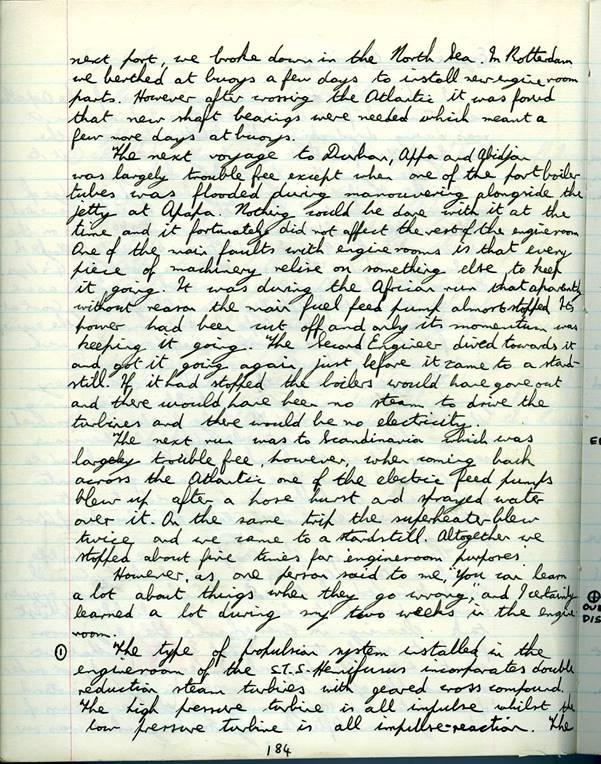 next port, we broke down in the North Sea. In Rotterdam
we berthed at buoys a few days to install new engineroom
parts. However after crossing the Atlantic it was found
that new shaft bearings were needed which meant a
few more days at buoys.
The next voyage to Durban, Appa and Abidjan
was largely trouble free except when one of the port boiler
tubes was flooded during manouvering alongside the
jetty at Apapa. Nothing could be done with it at the
time and it fortunately did not affect the rest of the engineroom
One of the main faults with enginerooms is that every
piece of machinery relise on something else to keep
it going. It was during the African run that aparently
without reason the main fuel feed pump almost stopped. Its
power had been cut off and only its momentum was
keeping it going. The Second Engineer dived towards it
and got it going again just before it came to a stand-
still. If it had stopped the boilers would have gone out
and there would have been no steam to drive the
turbines and there would be no electricity.
The next run was to Scandinavia which was
largely trouble free, however, when coming back
across the Atlantic one of the electric feed pumps
blew up after a hose burst and sprayed water
over it. On the same trip the superheater blew
twice and we came to a standstill. Altogether we
stopped about five times for 'engineroom purposes'
However, as one person said to me, 'You can learn
a lot about things when they go wrong', and I certainly
learned a lot during my two weeks in the engine
room.
① The type of propulsion system installed in the
engineroom of the S.T.S. Hemifusus incorporates double
reduction steam turbines with geared cross compound.
The high pressure turbine is all impulse whilst the
low pressure turbine is all impulse-reaction. The
184